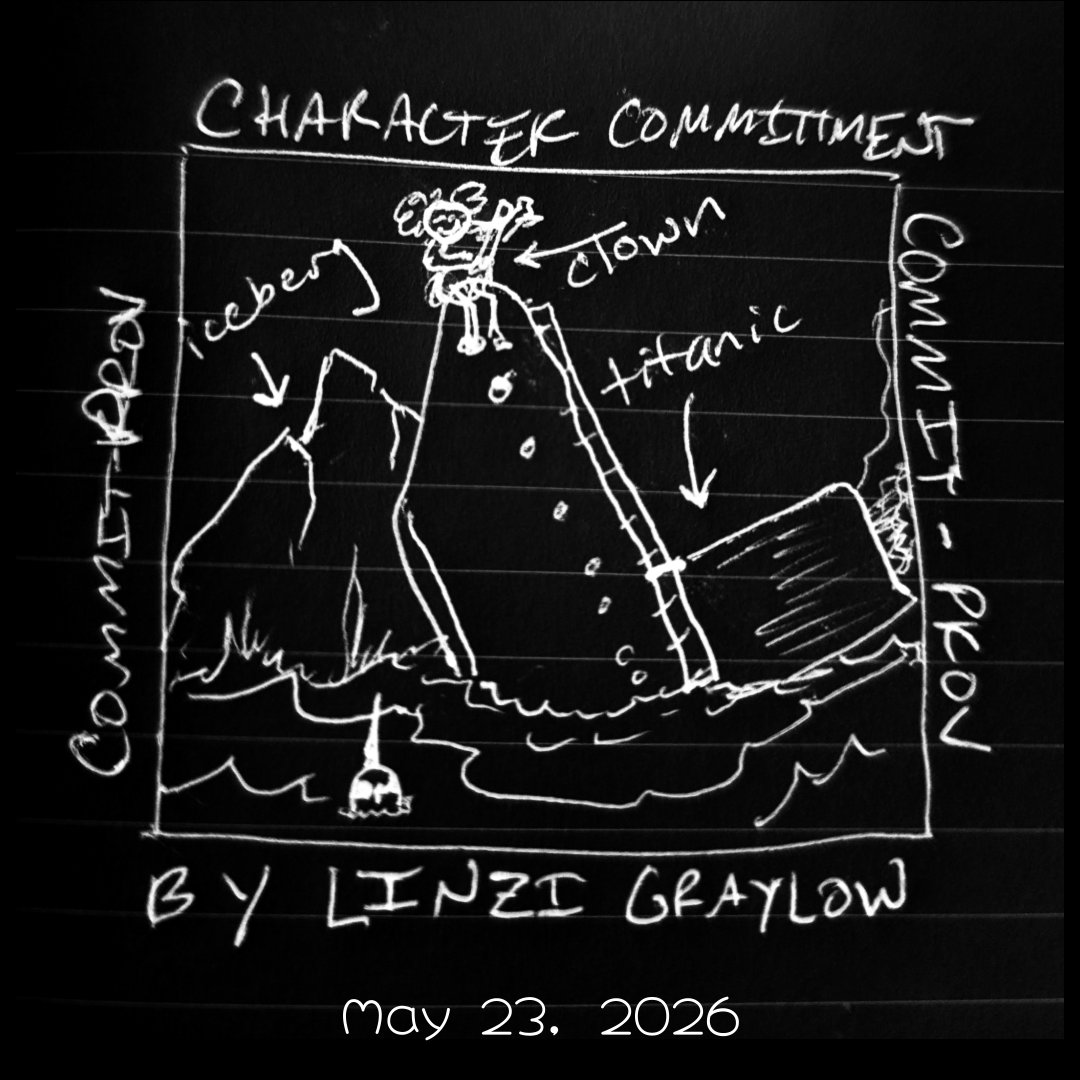 CHARACTER COMMITMENT
clown
iceberg
titanic
COMMIT-PROV
COMMIT-PROV
BY LINZI GRAYLOW
May 23, 2026